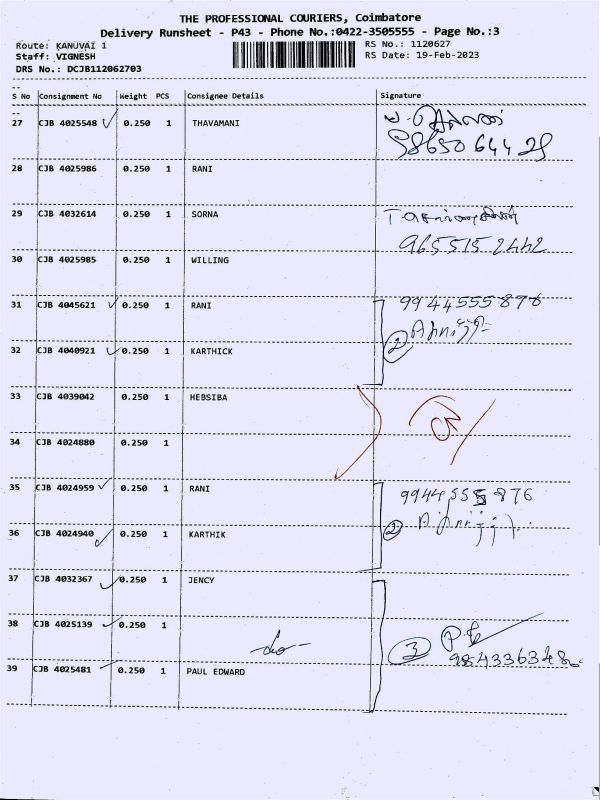 THE PROFESSIONAL COURIERS, Coimbatore
Delivery Runsheet - P43 - Phone No.:0422-3505555 - Page No.:3
Route: KANUVAI 1 RS No.: 1120627
Staff: VIGNESH RS Date: 19-Feb-2023
DRS No.: DCJB112062703
S No Consignment No Weight PCS Consignee Details Signature
27 CJB 4025548 0.250 1 THAVAMANI
98650 644 29
28 CJB 4025986 0.250 1 RANI
29 CJB 4032614 0.250 1 SORNA
965515 2442
30 CJB 4025985 0.250 1 WILLING
31 CJB 4045621 0.250 1 RANI 9944555876
32 CJB 4040921 0.250 1 KARTHICK 2
33 CJB 4039042 0.250 1 HEBSIBA
34 CJB 4024880 0.250 1
35 CJB 4024959 0.250 1 RANI 9944555876
36 CJB 4024940 0.250 1 KARTHIK 2
37 CJB 4032367 0.250 1 JENCY
38 CJB 4025139 0.250 1 3
39 CJB 4025481 0.250 1 PAUL EDWARD